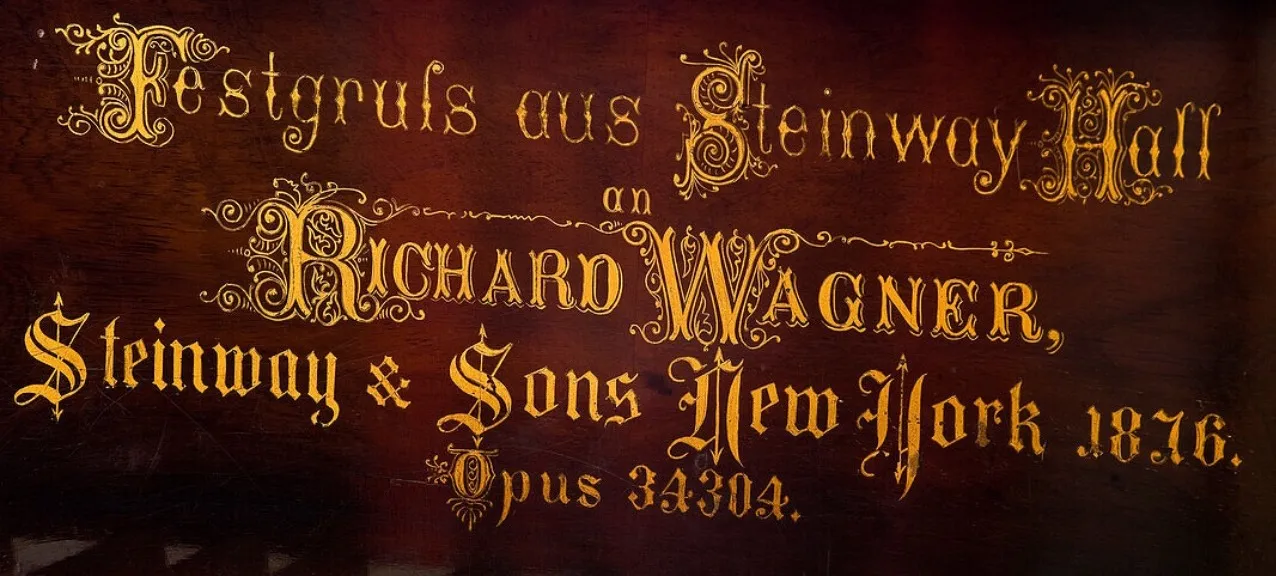 Festgruſs aus Steinway Hall
an
RICHARD WAGNER,
Steinway & Sons New York 1876.
Opus 34304.